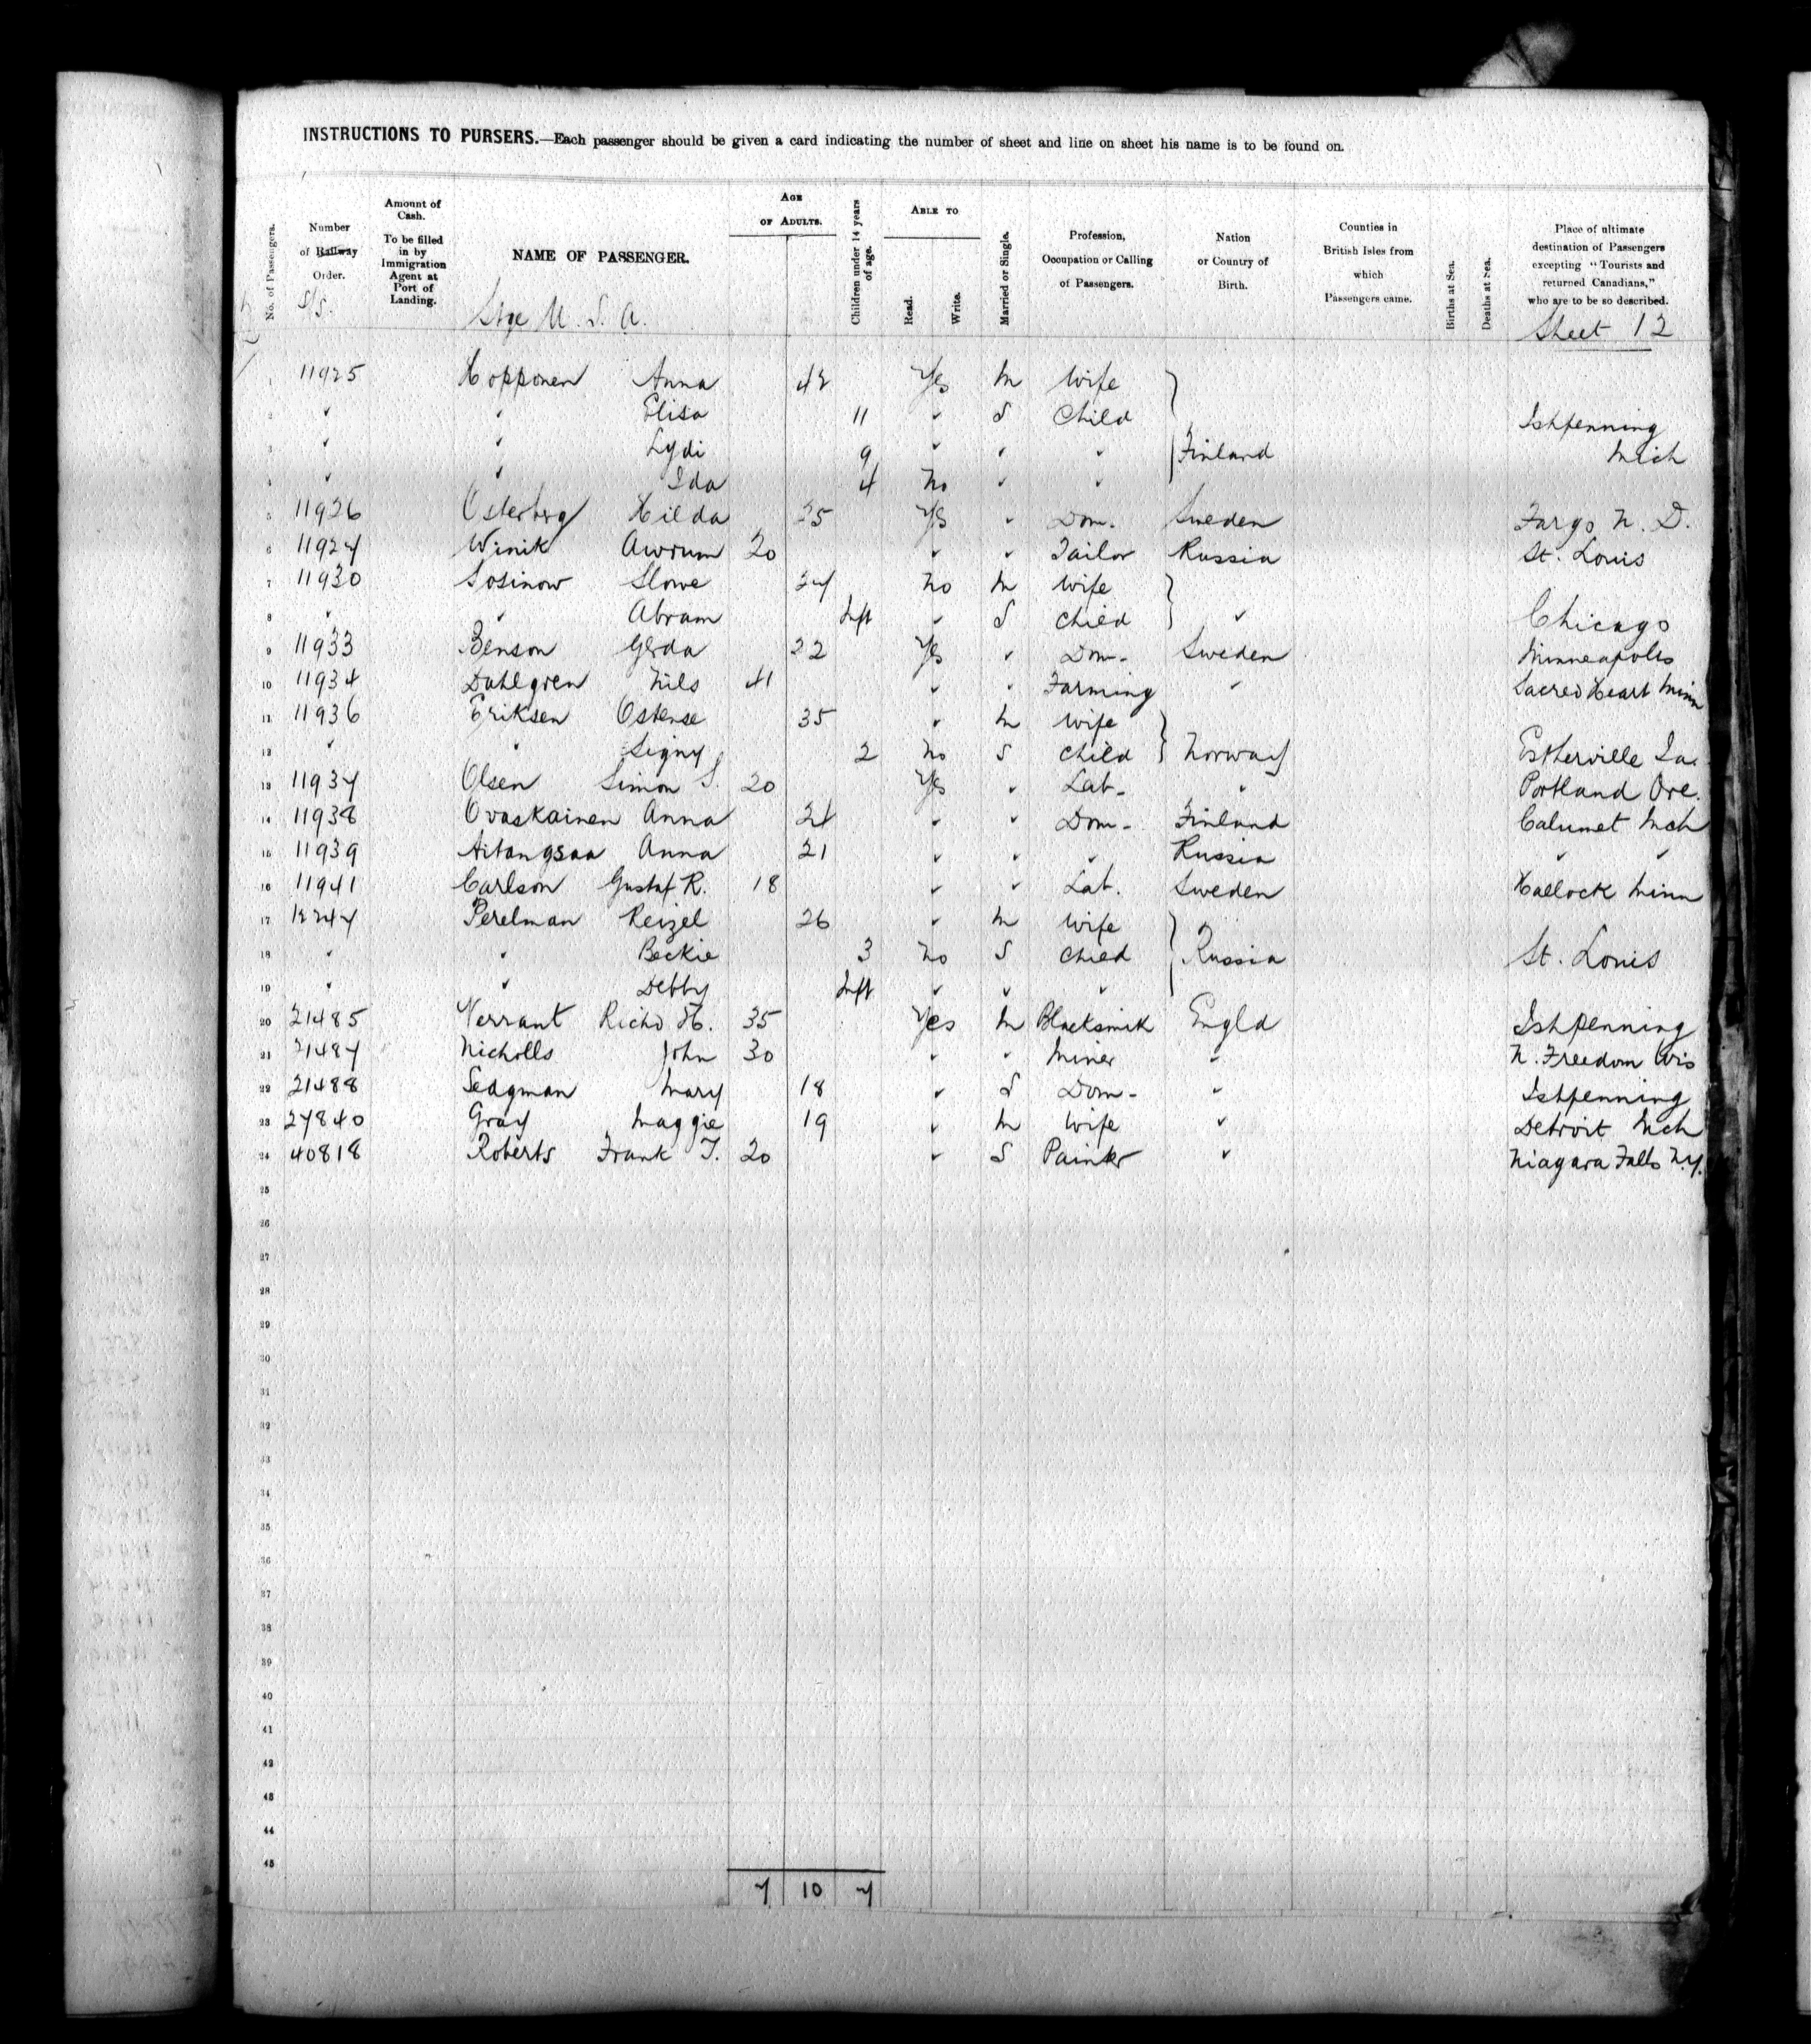 INSTRUCTIONS TO PURSERS.—Each passenger should be given a card indicating the number of sheet and line on sheet his name is to be found on.
No. of Passengers.
Number of Railway Order.
S/S.
Amount of Cash. To be filled in by Immigration Agent at Port of Landing.
NAME OF PASSENGER.
Stge U. S. A.
AGE OF ADULTS.
Children under 14 years of age.
ABLE TO
Read.
Write.
Married or Single.
Profession, Occupation or Calling of Passengers.
Nation or Country of Birth.
Counties in British Isles from which Passengers came.
Births at Sea.
Deaths at Sea.
Place of ultimate destination of Passengers excepting "Tourists and returned Canadians," who are to be so described.
Sheet 12
1 11925 Hopponen Anna 42 Yes M Wife }
2 " " Elisa 11 " S Child Ishpenning
3 " " Lydi 9 " " " Finland Mich
4 " " Ida 4 No " "
5 11926 Osterberg Hilda 25 Yes " Dom. Sweden Fargo N. D.
6 11927 Winik Awrum 20 " " Tailor Russia St. Louis
7 11930 Sosinow Slowe 27 No M Wife }
8 " " Abram Inft " S Child " Chicago
9 11933 Benson Gerda 22 Yes " Dom- Sweden Minneapolis
10 11934 Dahlgren Nils 41 " " Farming " Sacred Heart Minn
11 11936 Eriksen Ostense 35 " M Wife }
12 " " Signy 2 No S Child Norway Estherville Ia.
13 11937 Olsen Simon S. 20 Yes " Lab- " Portland Ore.
14 11938 Ovaskainen Anna 21 " " Dom- Finland Calumet Mch
15 11939 Anna 21 " " " Russia " "
16 11941 Carlson Gustaf R. 18 " " Lab. Sweden Hallock Minn
17 12247 Perelman Reizel 26 " M Wife }
18 " " Beckie 3 No S Child Russia St. Louis
19 " " Debby Inft " " "
20 21485 Verrant Richd H. 35 Yes M Blacksmik Engld Ishpenning
21 21487 Nicholls John 30 " " Miner " N. Freedom Wis
22 21488 Sedgman Mary 18 " S Dom- " Ishpenning
23 27840 Gray Maggie 19 " M Wife " Detroit Mch
24 40818 Roberts Frank T. 20 " S Painter " Niagara Falls N.Y.
25
26
27
28
29
30
31
32
33
34
35
36
37
38
39
40
41
42
43
44
45
7 10 7